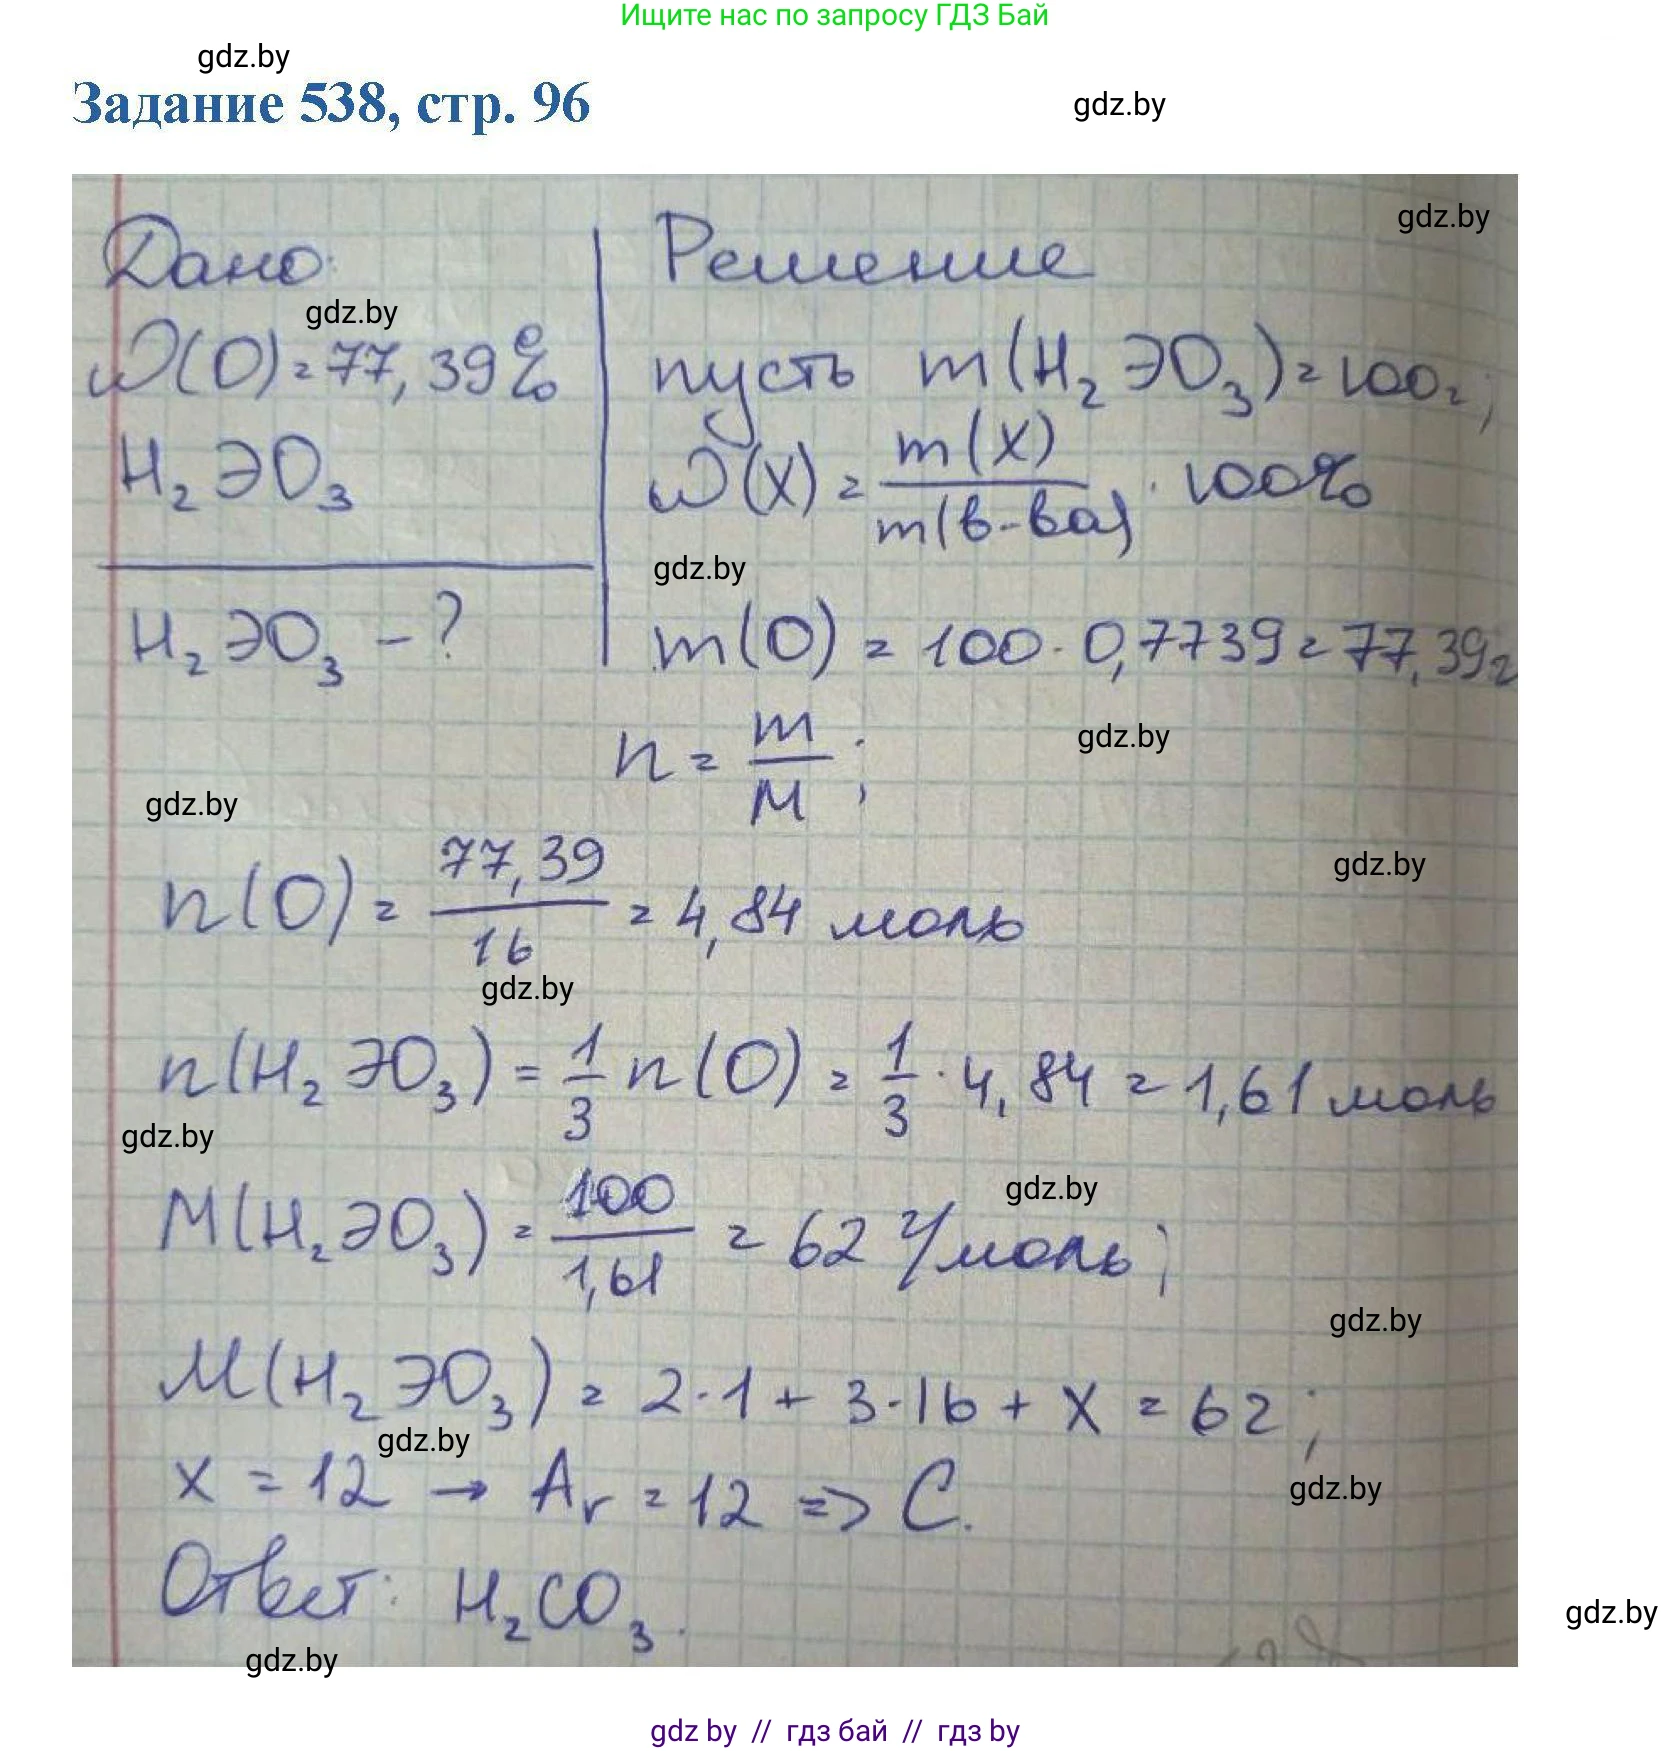 Ищите нас по запросу ГДЗ Бай
gdz.by
Задание 538, стр. 96
gdz.by
gdz.by
Дано:
Решение
gdz.by
ω(O) = 77,39%
пусть m(H₂ЭO₃) = 100г;
H₂ЭO₃
ω(X) = m(X)/m(в-ва) · 100%
gdz.by
H₂ЭO₃ - ?
m(O) = 100 · 0,7739 = 77,39г
n = m/M;
gdz.by
gdz.by
gdz.by
n(O) = 77,39/16 = 4,84 моль
gdz.by
n(H₂ЭO₃) = 1/3 n(O) = 1/3 · 4,84 = 1,61 моль
gdz.by
gdz.by
M(H₂ЭO₃) = 100/1,61 = 62 г/моль;
gdz.by
M(H₂ЭO₃) = 2·1 + 3·16 + X = 62;
gdz.by
x = 12 → Ar = 12 => C.
gdz.by
Ответ: H₂CO₃.
gdz.by
gdz.by
gdz by // гдз бай // гдз by